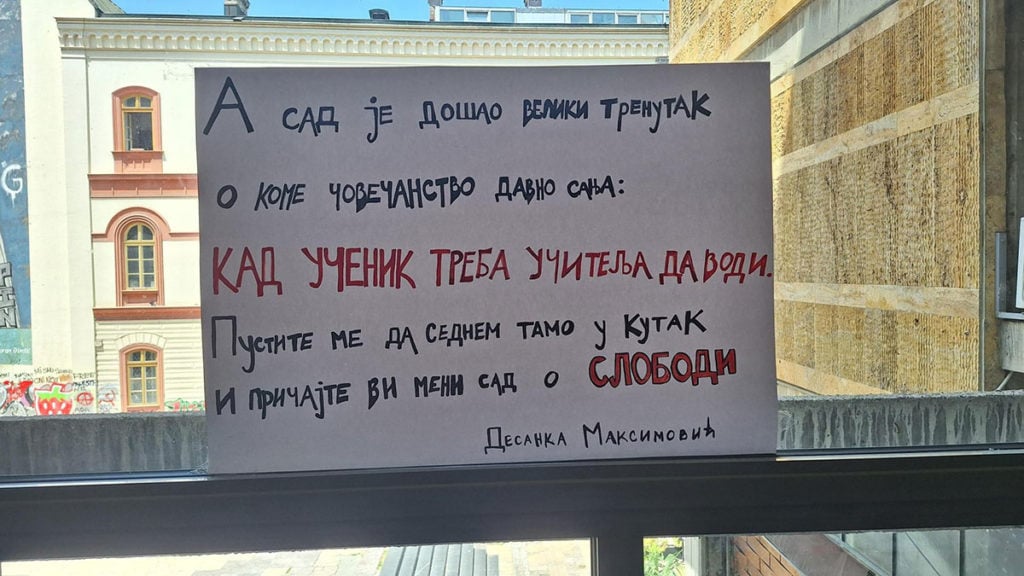 А САД ЈЕ ДОШАО ВЕЛИКИ ТРЕНУТАК
О КОМЕ ЧОВЕЧАНСТВО ДАВНО САЊА:
КАД УЧЕНИК ТРЕБА УЧИТЕЉА ДА ВОДИ.
ПУСТИТЕ МЕ ДА СЕДНЕМ ТАМО У КУТАК
И ПРИЧАЈТЕ ВИ МЕНИ САД О СЛОБОДИ
ДЕСАНКА МАКСИМОВИЋ